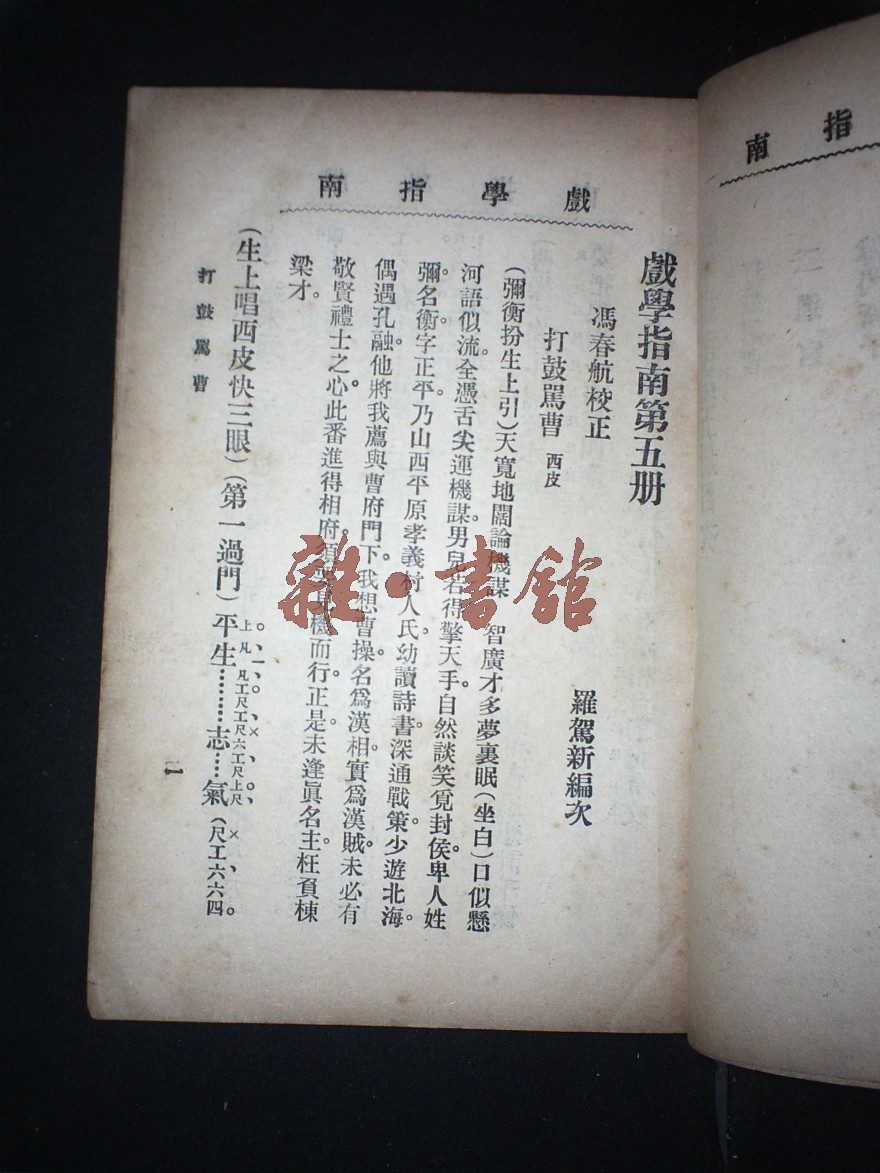 戲學指南
戲學指南第五册
馮春航校正
羅駕新編次
打鼓駡曹 西皮
(彌衡扮生上引)天寬地闊論機謀 智廣才多夢裏眠(坐白)口似懸
河語似流。全憑舌尖運機謀。男兒若得擎天手。自然談笑覓封侯。卑人姓
彌名衡字正平。乃山西平原孝義村人氏。幼讀詩書。深通戰策。少遊北海。
偶遇孔融。他將我薦與曹府門下。我想曹操名爲漢相。實爲漢賊。未必有
敬賢禮士之心。此番進得相府。須要見機而行。正是未逢眞名主。枉負棟
梁才。
(生上唱西皮快三眼)(第一過門)平生……志…氣(尺工六六四
上凡 凡工尺工尺六工尺上尺
打鼓駡曹
一
指南
雜·書館